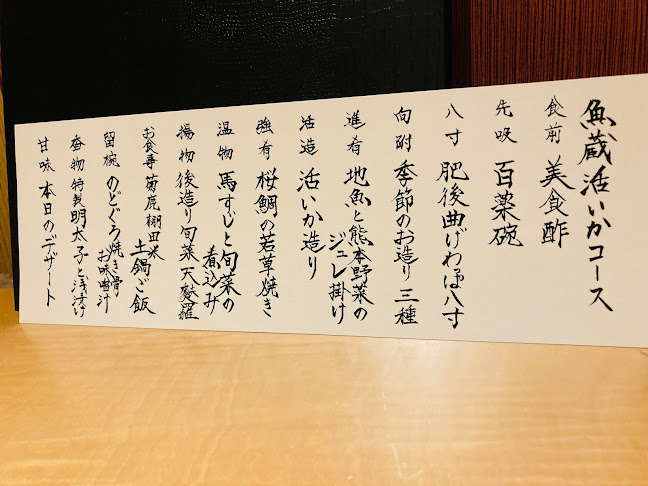 魚蔵活いかコース
食前 美食酢
先吸 百薬碗
八寸 肥後曲げわっぱ八寸
向附 季節のお造り三種
進肴 地魚と熊本野菜の
ジュレ掛け
活造 活いか造り
強肴 桜鯛の若草焼き
温物 馬すじと旬菜の
煮込み
揚物 後造り旬菜天麩羅
お食事 菊鹿棚田米
土鍋ご飯
留椀 のどぐろ焼き骨
お味噌汁
香物 特製明太子と浅漬け
甘味 本日のデザート